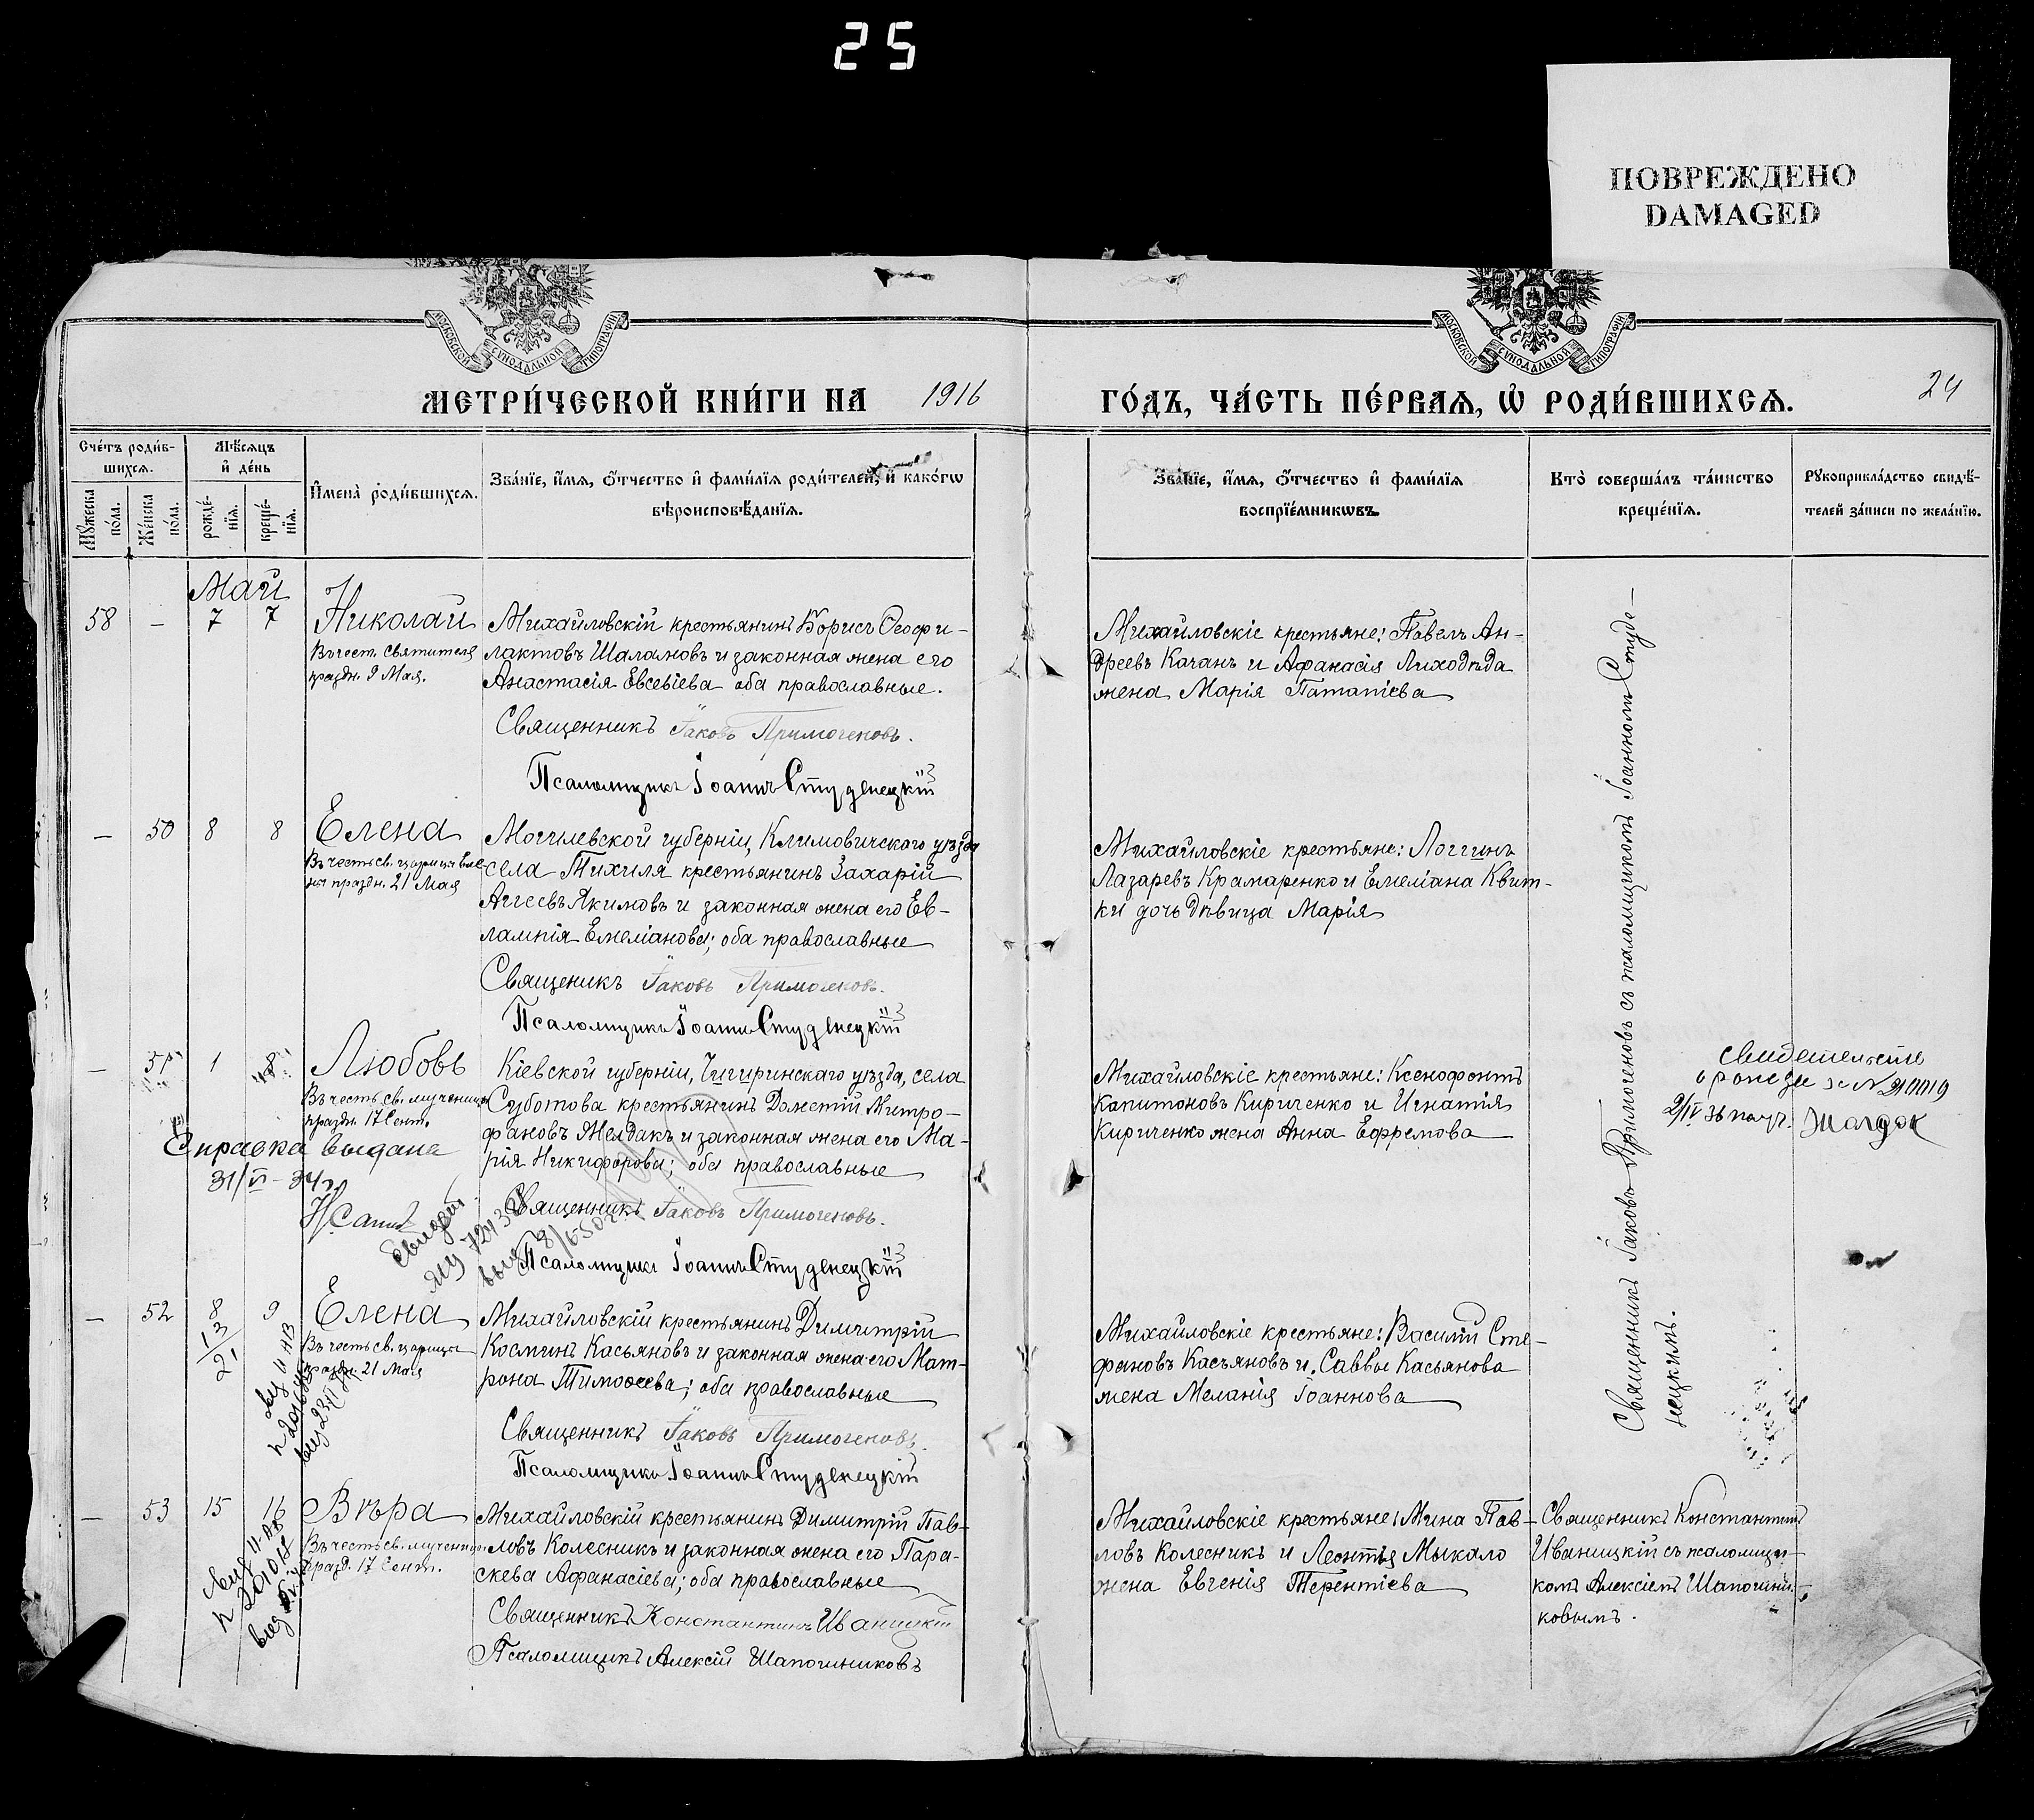 25
ПОВРЕЖДЕНО
DAMAGED
МОСКОВСКОЙ СѴНОДАЛЬНОЙ ТИПОГРАФІИ
МОСКОВСКОЙ СѴНОДАЛЬНОЙ ТИПОГРАФІИ
МЕТРИ́ЧЕСКОЙ КНИ́ГИ НА 1916
ГО́ДЪ, ЧА́СТЬ ПЕ́РВАЯ, Ѡ РОДИ́ВШИХСЯ.
24
Сче́тъ роди́в-
шихся.
Мѣ́сяцъ
и де́нь
Мꙋжеска по́ла.
Же́нска по́ла.
рожде́-
нїя.
креще́-
нїя.
Имена̀ роди́вшихся.
Зва́нїе, и́мя, о́тчество и фами́лїя роди́телей, и како́гѡ
вѣроисповѣ́данїя.
Зва́нїе, и́мя, о́тчество и фами́лїя
воспрїе́мникѡвъ
Кто̀ соверша́лъ та́инство
креще́нїя.
Рꙋкоприкла́дство свидѣ́-
телей за́писи по жела́нїю.
Май
58 — 7 7 Николай
Въ чест. Святителя
праздн. 9 Мая.
Михайловскій крестьянинъ Борисъ Ѳеофи-
лактовъ Шаламовъ и законная жена его
Анастасія Евсевіева оба православные.
Священникъ Іаковъ Примогеновъ.
Псаломщикъ Іоаннъ Студенецкій
Михайловскіе крестьяне: Павелъ Ан-
дреевъ Качанъ и Афанасія Лиходѣда
жена Марія Патапіева
— 50 8 8 Елена
Въ честь св. царицы Еле-
ны праздн. 21 Мая
Могилевской губерніи, Климовичскаго уѣзда
села Тихиля крестьянинъ Захарій
Аггеевъ Якимовъ и законная жена его Ев-
лампія Емеліанова; оба православные
Священикъ Іаковъ Примогеновъ.
Псаломщикъ Іоаннъ Студенецкій
Михайловскіе крестьяне: Логгинъ
Лазаревъ Крамаренко и Емеліана Квит-
ки дочь дѣвица Марія
— 51 1 8 Любовь
Въ честь св. мученицы
праздн. 17 Сент.
Кіевской губерніи, Чигиринскаго уѣзда, села
Суботова крестьянинъ Дометій Митро-
фановъ Желдакъ и законная жена его Ма-
рія Никифорова; оба православные
Священникъ Іаковъ Примогеновъ.
Псаломщикъ Іоаннъ Студенецкій
Справка выдана
Михайловскіе крестьяне: Ксенофонтъ
Капитоновъ Кириченко и Игнатія
Кириченко жена Анна Ефремова
свидетельство
2/IV 36 получ. Жолдок
— 52 8 9 Елена
13
21
Въ честь св. царицы
праздн. 21 Мая
Михайловскій крестьянинъ Димитрій
Косминъ Касьяновъ и законная жена его Мат-
рона Тимоѳеева; оба православные
Священникъ Іаковъ Примогеновъ.
Псаломщикъ Іоаннъ Студенецкій
Михайловскіе крестьяне: Василій Сте-
фановъ Касьяновъ и Саввы Касьянова
жена Меланія Іоаннова
Священникъ Іаковъ Примогеновъ съ псаломщикомъ Іоанномъ Студе-
нецкимъ.
— 53 15 16 Вѣра
Въ честь св. мученицы
празд. 17 Сент.
Михайловскій крестьянинъ Димитрій Пав-
ловъ Колесникъ и законная жена его Пара-
скева Афанасіева; оба православные
Священникъ Константинъ Иваницкій
Псаломщикъ Алексій Шапошниковъ
Михайловскіе крестьяне: Мина Пав-
ловъ Колесникъ и Леонтія Мыкало
жена Евгенія Терентіева
Священникъ Константинъ
Иваницкій съ псаломщи-
комъ Алексіемъ Шапошни-
ковымъ.